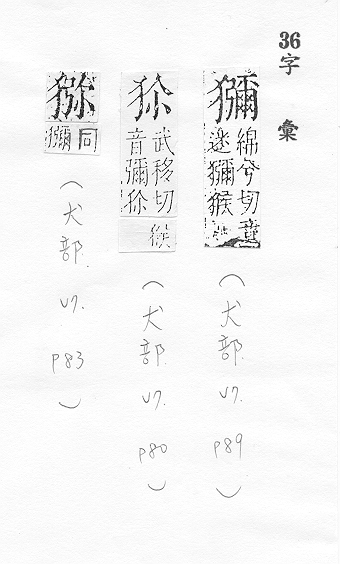 36字彙
獼
綿兮切
迷獼猴
(犬部.
V7.
P89)
狝
武移切
音彌狝
猴
(犬部.
V7.
P80)
猕
同
獼
(犬部.
V7.
P83)